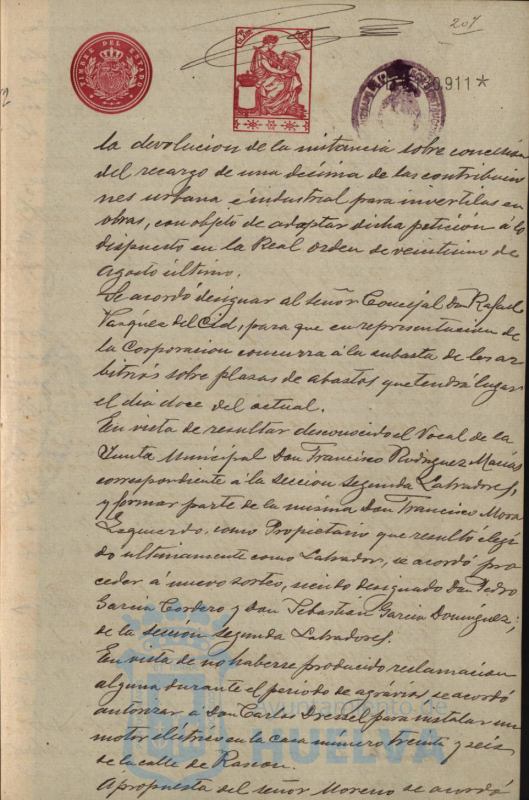 207
TIMBRE DEL ESTADO
0.911*
la devolucion de la instancia sobre concesión
del recargo de una décima de las contribucio
nes urbana é industrial para invertilas en
obras, con objeto de adaptar dicha peticion á lo
dispuesto en la Real orden de veintiuno de
Agosto último.
Se acordó designar al señor Concejal Don Rafael
Vazquez del Cid, para que en representacion de
la Corporacion concurra á la subasta de los ar
bitrios sobre plazas de abastos que tendrá lugar
el dia doce del actual.
En vista de resultar desconocido el Vocal de la
Junta Municipal Don Francisco Rodriguez Macías
correspondiente á la seccion segunda Labradores,
y formar parte de la misma Don Francisco Mora
Izquierdo, como Propietario que resultó elegi
do ultimamente como Labrador, se acordó pro
ceder á nuevo sorteo, siendo designado Don Pedro
Garcia Cordero y Don Sebastián Garcia Dominguez;
de la sección segunda Labradores.
En vista de no haberse producido reclamacion
alguna durante el periodo de agravios se acordó
autorizar á Don Carlos Dressel para instalar un
motor eléctrico en la casa número treinta y seis
de la calle de Rascon.
A propuesta del señor Moreno se acordó
Ayuntamiento de
HUELVA